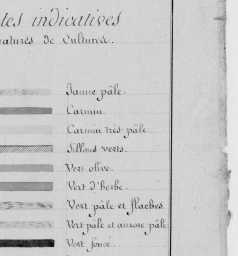 tes indicatives
natures de cultures.
Jaune pâle.
Carmin.
Carmin très pâle
Sillons verts.
Vert olive.
Vert d'herbe.
Vert pâle et flaches.
Vert pâle et aurore pâle
Vert foncé.